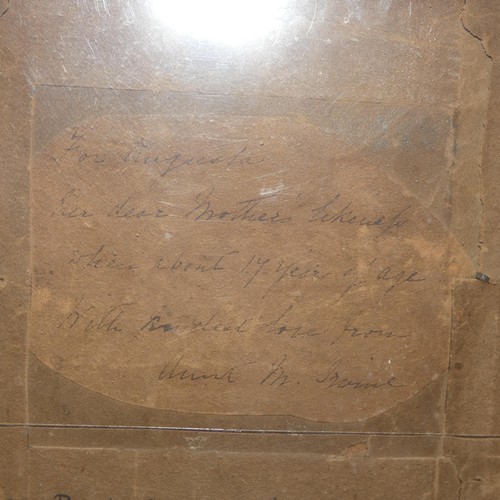 For Augusta
her dear Mother's Likeness
when about 17 year of age
With kindest love from
Aunt M. Irvine